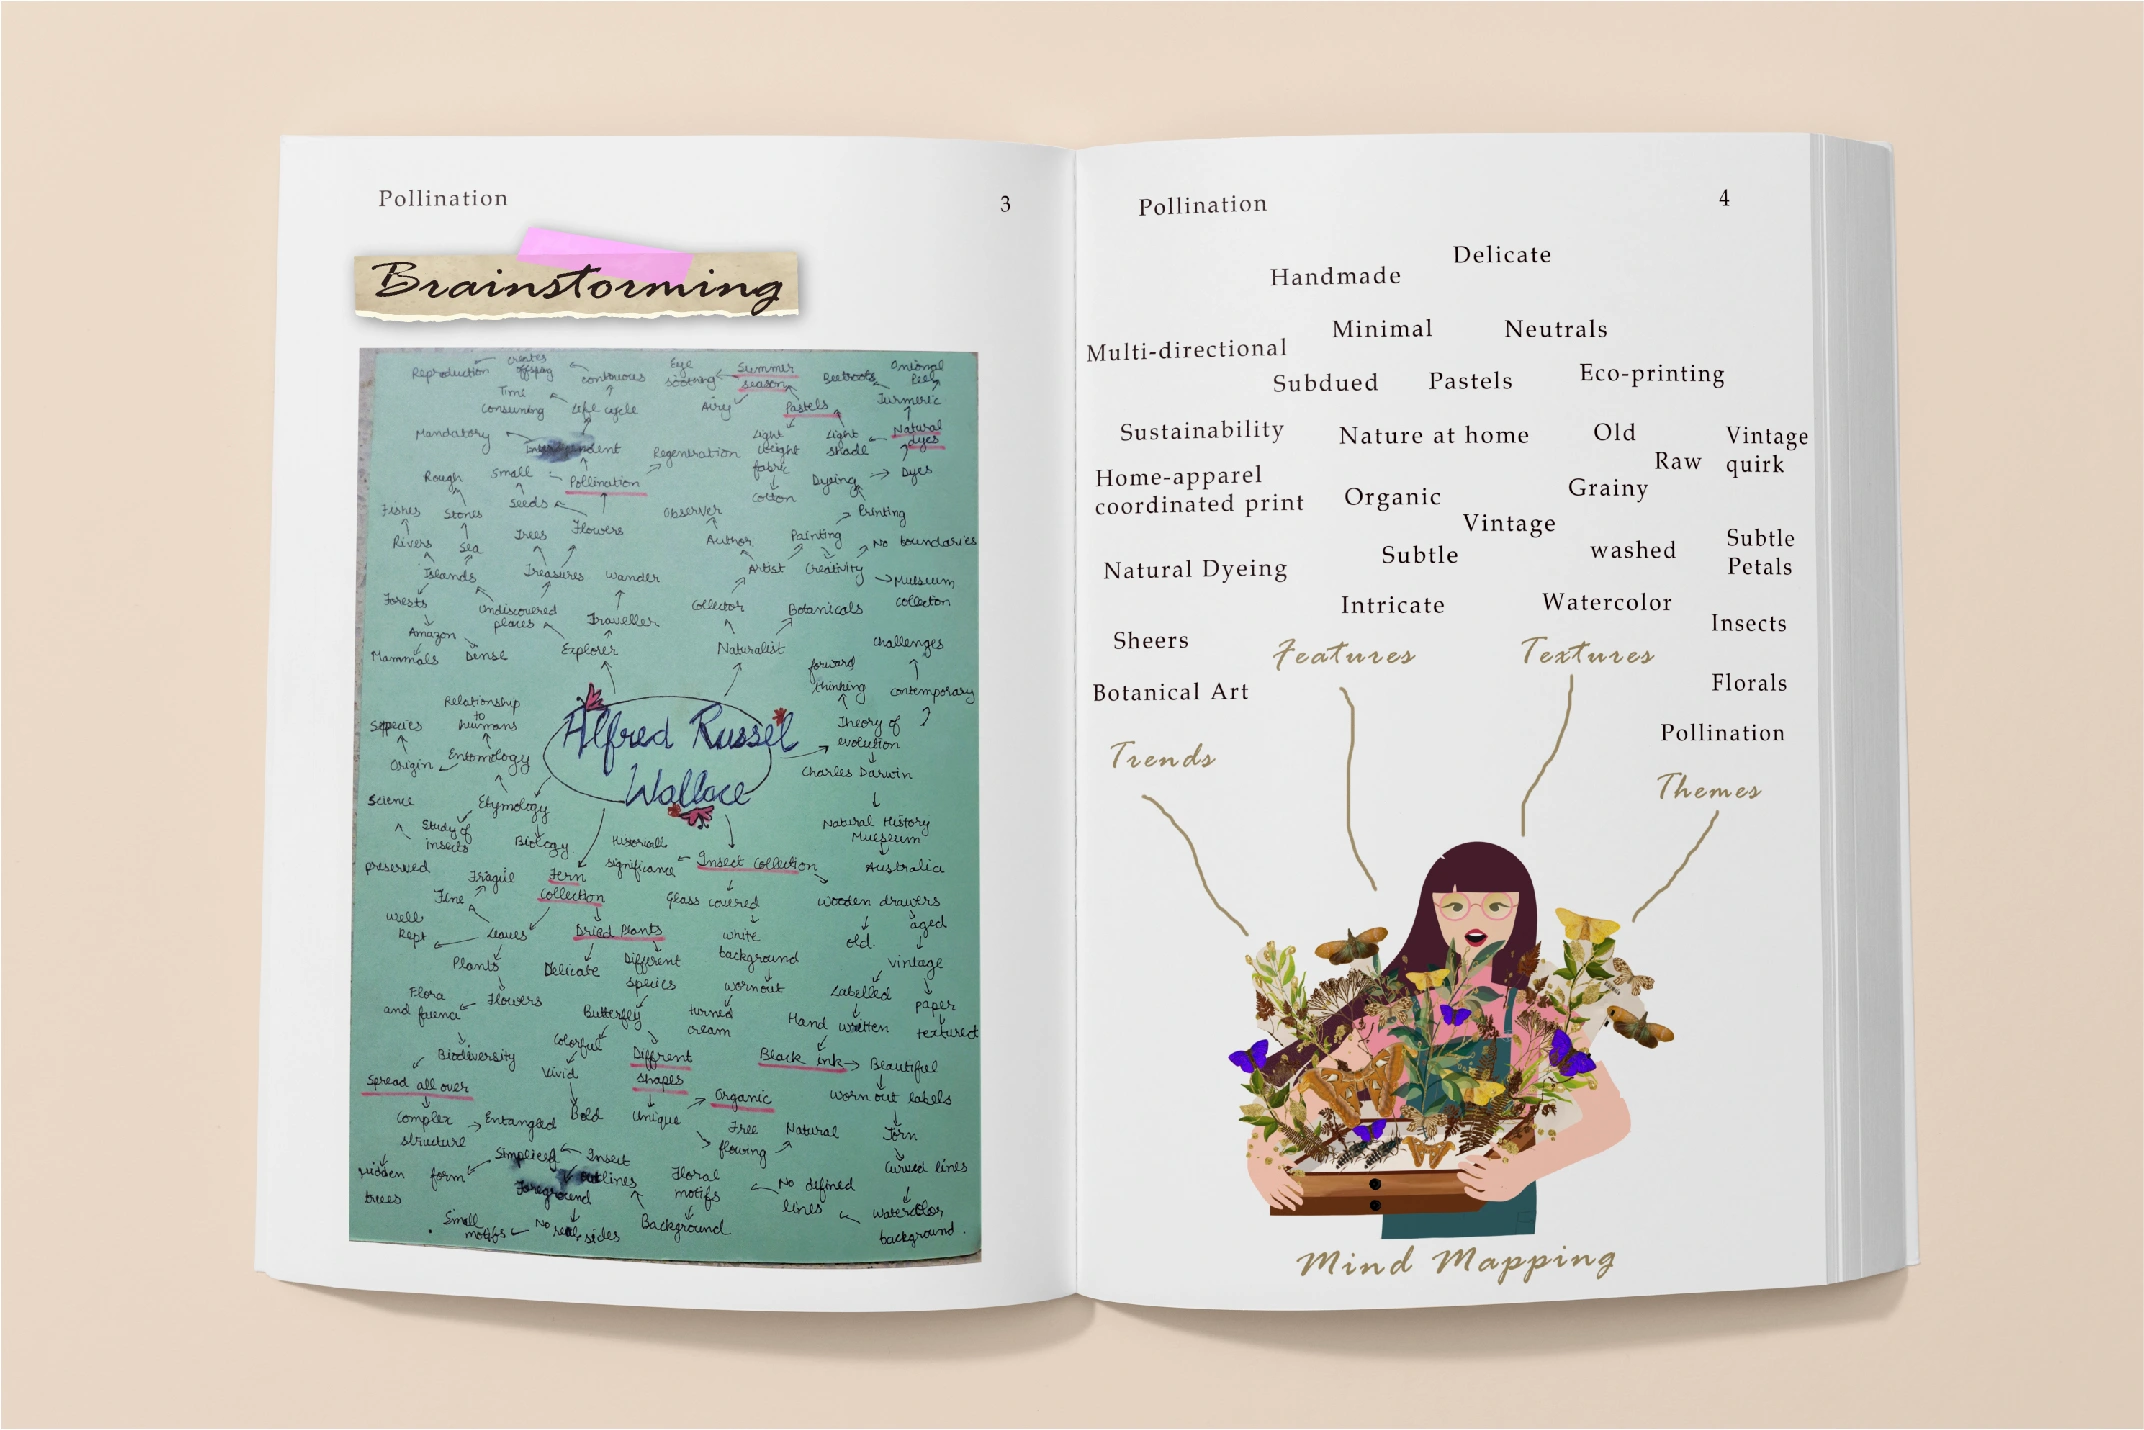 Pollination
3
Brainstorming
Reproduction
creates
continuous
Eye
soothing
Summer
season
Beetroots
Onional
Peel
Time
consuming
life cycle
Airy
Pastels
Turmeric
Mandatory
Regenration
Light
weight
fabric
Cotton
light
shade
Natural
dyes
Rough
Small
Pollination
Dyeing
Dyes
Fishes
Stones
Seeds
Flowers
Observer
Printing
Rivers
Sea
Trees
Author
Painting
No boundaries
Islands
Treasures
Wander
Artist
Creativity
Museum
collection
Forests
Undiscovered
places
Traveller
Collector
Botanicals
Amazon
Mammals
Dense
Explorer
Naturalist
challenges
forward
thinking
contemporary
Relationship
to
humans
Alfred Russel
Wallace
Theory of
evolution
?
Origin
Entomology
Charles Darwin
Science
Etymology
Study of
insects
Biology
Natural History
Australia
preserved
Fragile
Fern
collection
significance
Insect Collection
Fine
Glass covered
wooden drawers
aged
well
kept
leaves
Dried Plants
white
background
old
vintage
Plants
Delicate
Different
species
wornout
Labelled
paper
Flora
Flowers
Butterfly
turned
cream
Hand written
textured
Biodiversity
Colorful
Diffrent
shapes
Black ink
Beautiful
Spread all over
Vivid
Organic
worn out labels
Complex
structure
Entangled
Bold
Unique
Free
flowing
Natural
Torn
hidden
trees
form
Insect
outlines
Floral
motifs
No defined
lines
Curved lines
Foreground
Small
motifs
Background
Watercolor
background
Pollination
4
Delicate
Handmade
Minimal
Neutrals
Multi-directional
Subdued
Pastels
Eco-printing
Sustainability
Nature at home
Old
Vintage
quirk
Raw
Home-apparel
coordinated print
Organic
Grainy
Vintage
Natural Dyeing
Subtle
washed
Subtle
Petals
Intricate
Watercolor
Insects
Sheers
Features
Textures
Botanical Art
Florals
Pollination
Trends
Themes
Mind Mapping